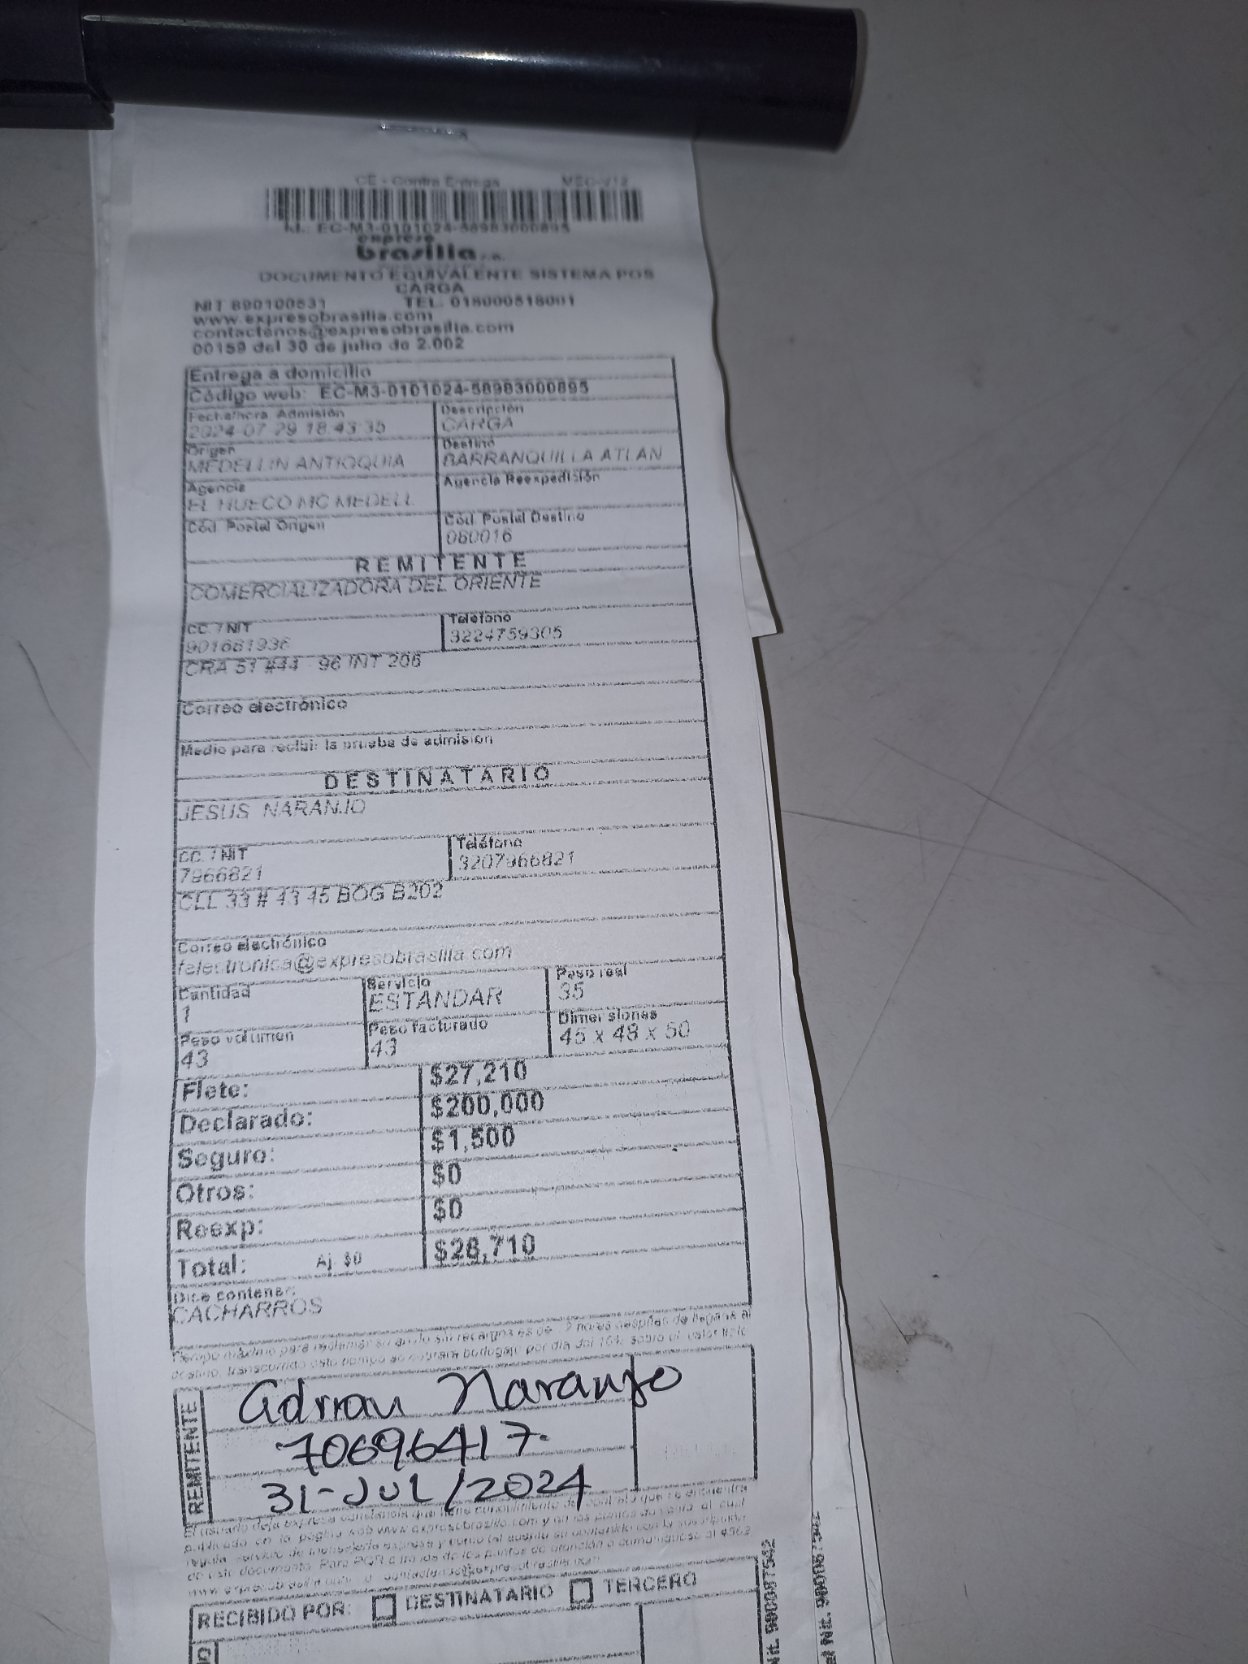 CE - Contra Entrega
Id.: EC-M3-0101024-58983000895
expreso
brasilia s.a.
DOCUMENTO EQUIVALENTE SISTEMA POS
CARGA
NIT 890100531 TEL. 018000518001
www.expresobrasilia.com
contactenos@expresobrasilia.com
00159 del 30 de julio de 2.002
Entrega a domicilio
Código web: EC-M3-0101024-58983000895
Fecha/hora Admisión Descripción
2024-07-29 18:43:35 CARGA
Origen Destino
MEDELLIN ANTIOQUIA BARRANQUILLA ATLAN
Agencia Agencia Reexpedisión
EL HUECO MC MEDELL
Cód. Postal Origen Cód. Postal Destino
080016
REMITENTE
COMERCIALIZADORA DEL ORIENTE
CC. / NIT Teléfono
901681936 3224759305
CRA 51 #44 - 96 INT 206
Correo electrónico
Medio para recibir la prueba de admisión
DESTINATARIO
JESUS NARANJO
CC. / NIT Teléfono
7966821 3207966821
CLL 33 # 43 45 BOG B202
Correo electrónico
felectronica@expresobrasilia.com
Cantidad Servicio Peso real
1 ESTANDAR 35
Peso volumen Peso facturado Dimensiones
43 43 45 x 48 x 50
Flete: $27,210
Declarado: $200,000
Seguro: $1,500
Otros: $0
Reexp: $0
Total: Aj $0 $28,710
Dice contener:
CACHARROS
Tiempo máximo para reclamar su envío sin recargos es de horas después de llegada al
destino, transcurrido este tiempo se cobrara bodegaje por día del 10% sobre el valor flete
REMITENTE
Adrian Naranjo
70696417.
31-JUL/2024
El usuario deja expresa constancia que tiene conocimiento del contrato que se encuentra
publicado en la página web www.expresobrasilia.com y en los puntos de venta, el cual
regula servicio de mensajería expresa y
de este documento. Para PQR a través de los puntos de atención o comunicarse al 4962
RECIBIDO POR: DESTINATARIO TERCERO
Nit. 900087542